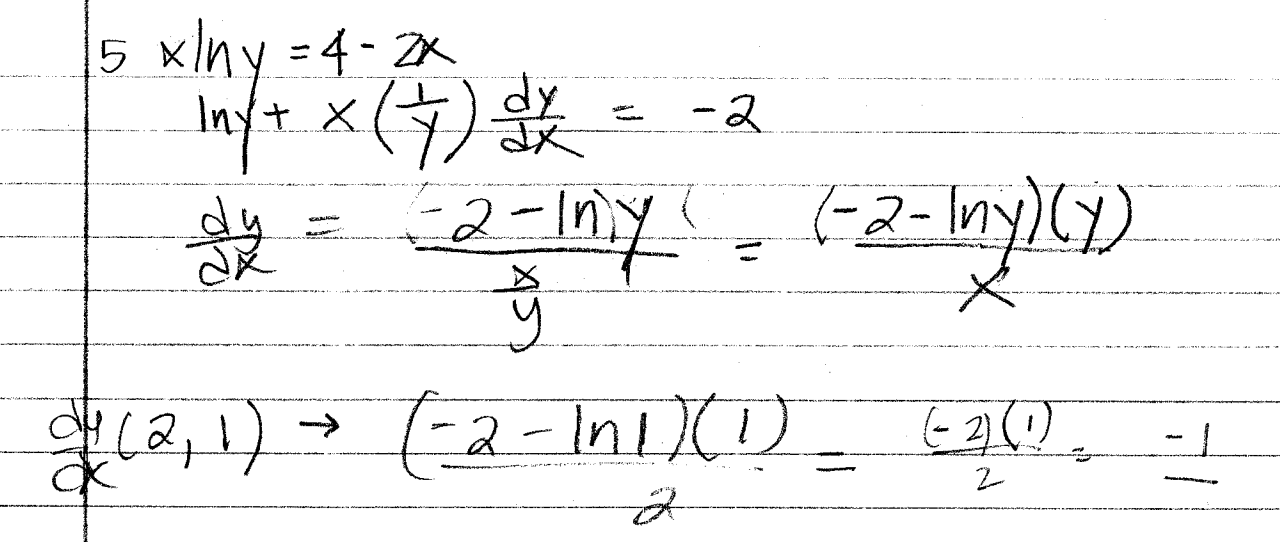 5 xlny = 4 - 2x
lny + x (1/y) dy/dx = -2
dy/dx = (-2 - ln)y ( / (x/y) = (-2 - lny)(y) / x
dy/dx (2, 1) → (-2 - ln1)(1) / 2 = (-2)(1) / 2 = -1